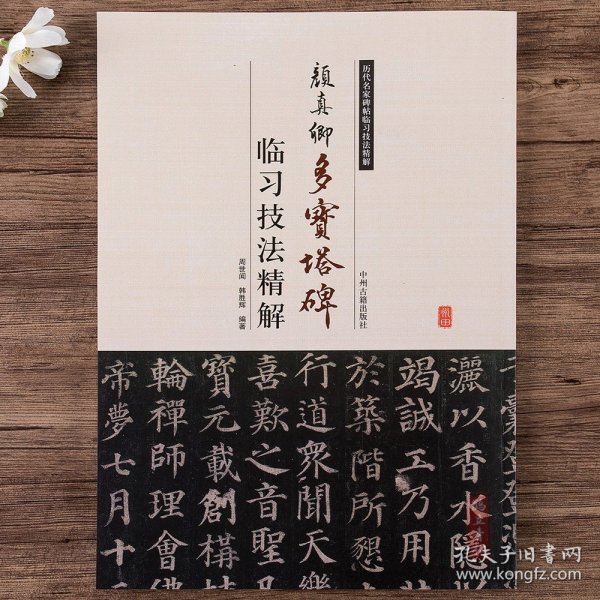 历代名家碑帖临习技法精解
颜真卿多寳塔碑
临习技法精解
周世闻 韩胜辉 编著
中州古籍出版社
灑以香水隱
竭誠五乃用
於築階所懇
行道衆聞天樂
喜歎之音聖
寳元載創構
輪禪師理會佛
帝夢七月十
孔夫子旧书网
www.kongfz.com